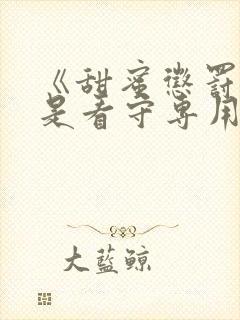 《甜蜜惩罚
是看守专用
大蓝鲸